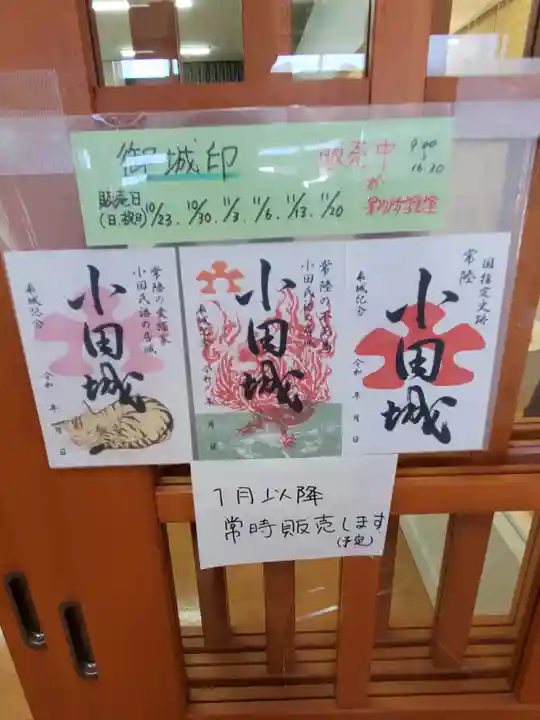 御城印
販売中
9:00
〜
16:30
販売日
(日、祝日)
10/23. 10/30. 11/3. 11/6. 11/13. 11/20
常陸の愛猫家
小田氏治の居城
小田城
来城記念
令和 年 月 日
常陸の不死鳥
小田氏治の
小田城
来城
令和
月 日
国指定史跡
常陸
小田城
来城記念
令和 年 月 日
1月以降
常時販売します
(予定)